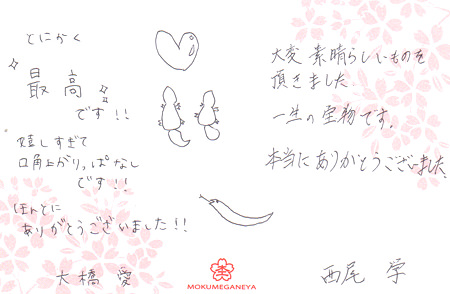 とにかく
最高
です!!
嬉しすぎて
口角上がりっぱなし
です!!
ほんとに
ありがとうございました!!
大橋 愛
大変 素晴らしいものを
頂きました
一生の宝物です。
本当にありがとうございました。
西尾 学
MOKUMEGANEYA